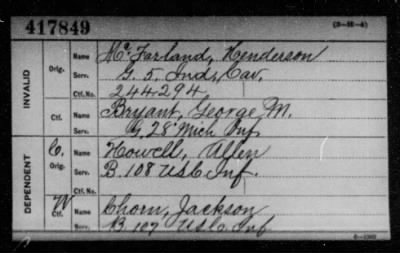 417849
(3-H-4)
INVALID
Orig. Name McFarland, Henderson
Serv. G. 5. Ind, Cav,
Ctf. No. 244294
Ctf. Name Bryant, George M.
Serv. G, 28" Mich Inf,
DEPENDENT
C. Orig. Name Howell, Allen
Serv. B. 108 U S C Inf.
Ctf. No.
W Ctf. Name Chorn, Jackson
Serv. B 107 U S C Inf